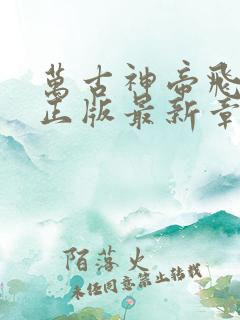 萬古神帝飛
正版最新章
陌落火
未任同意禁止转载